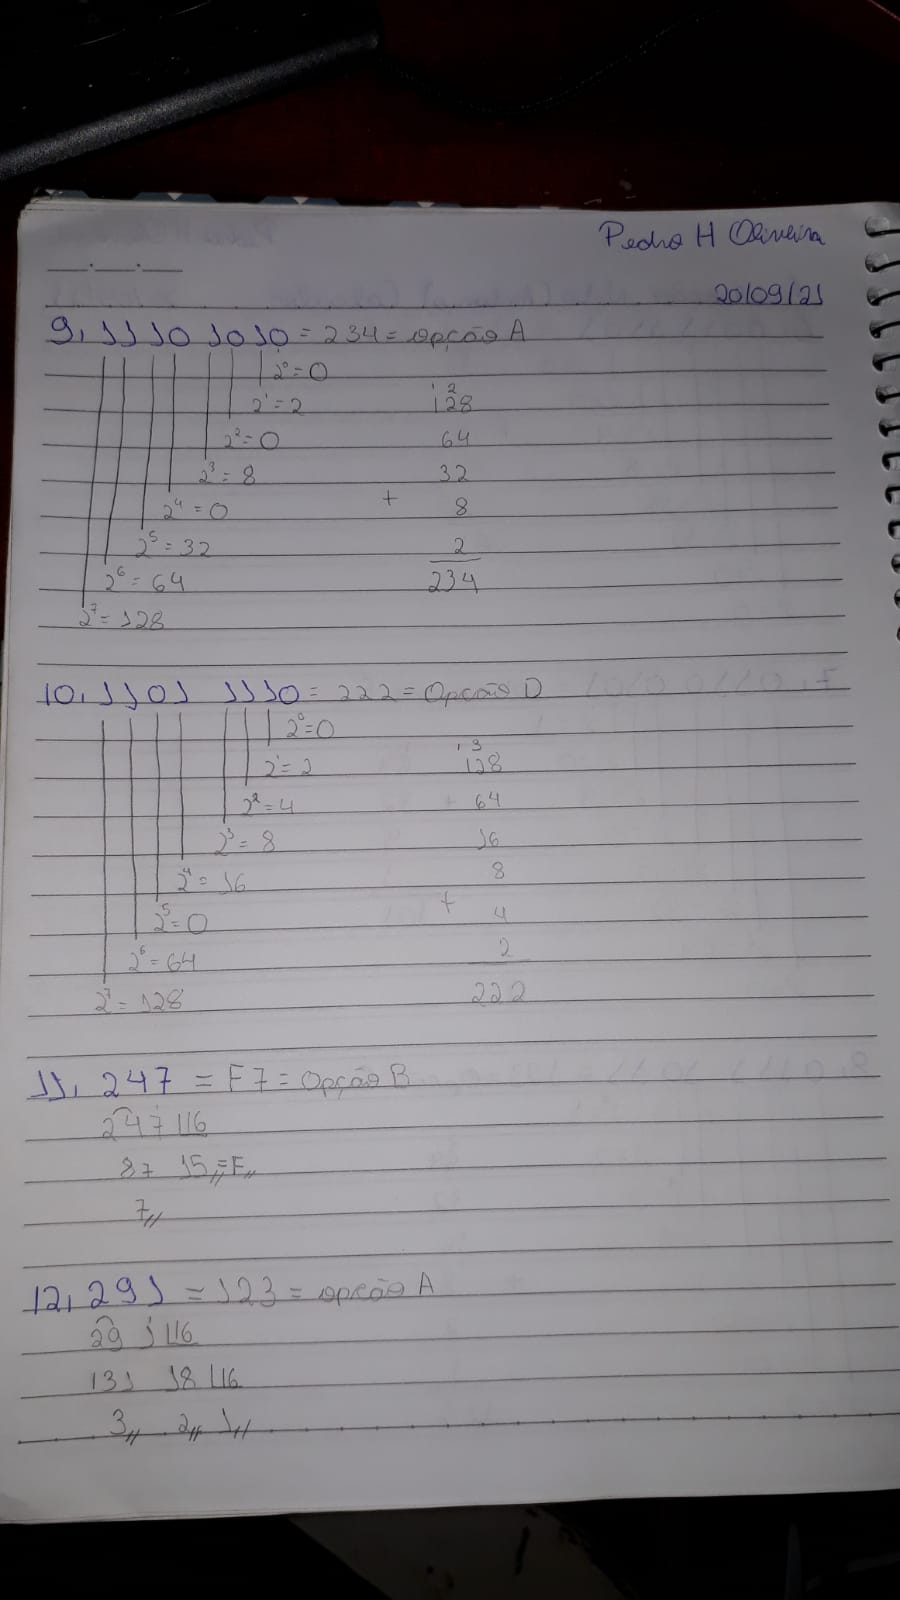 Pedro H Oliveira
20/09/21
9, 1110 1010 = 234 = opção A
2⁰ = 0
2¹ = 2
2² = 0
2³ = 8
2⁴ = 0
2⁵ = 32
2⁶ = 64
2⁷ = 128
1 2
128
64
32
+ 8
2
234
10, 1101 1110 = 222 = Opção D
2⁰ = 0
2¹ = 2
2² = 4
2³ = 8
2⁴ = 16
2⁵ = 0
2⁶ = 64
2⁷ = 128
1 3
128
64
16
8
+ 4
2
222
11, 247 = F7 = Opção B
247 |16
87 15,, = F,,
7,,
12, 291 = 123 = opção A
29 1 |16
131 18 |16
3,, 2,, 1,,